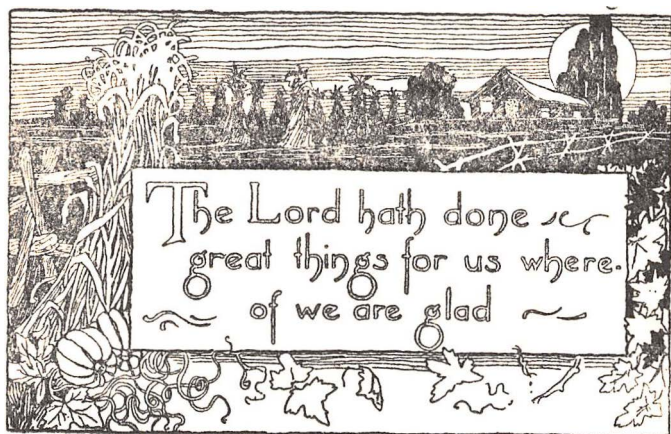 The Lord hath done
great things for us where.
of we are glad